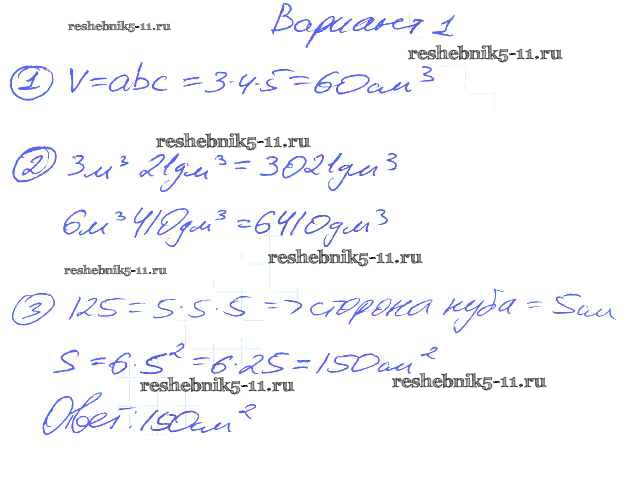 reshebnik5-11.ru
Вариант 1
reshebnik5-11.ru
1 V=abc = 3·4·5 = 60см³
reshebnik5-11.ru
2 3м³ 21дм³ = 3021дм³
6м³ 410дм³ = 6410дм³
reshebnik5-11.ru
reshebnik5-11.ru
3 125 = 5·5·5 => сторона куба = 5см
S = 6·5² = 6·25 = 150см²
reshebnik5-11.ru
reshebnik5-11.ru
Ответ: 150см²